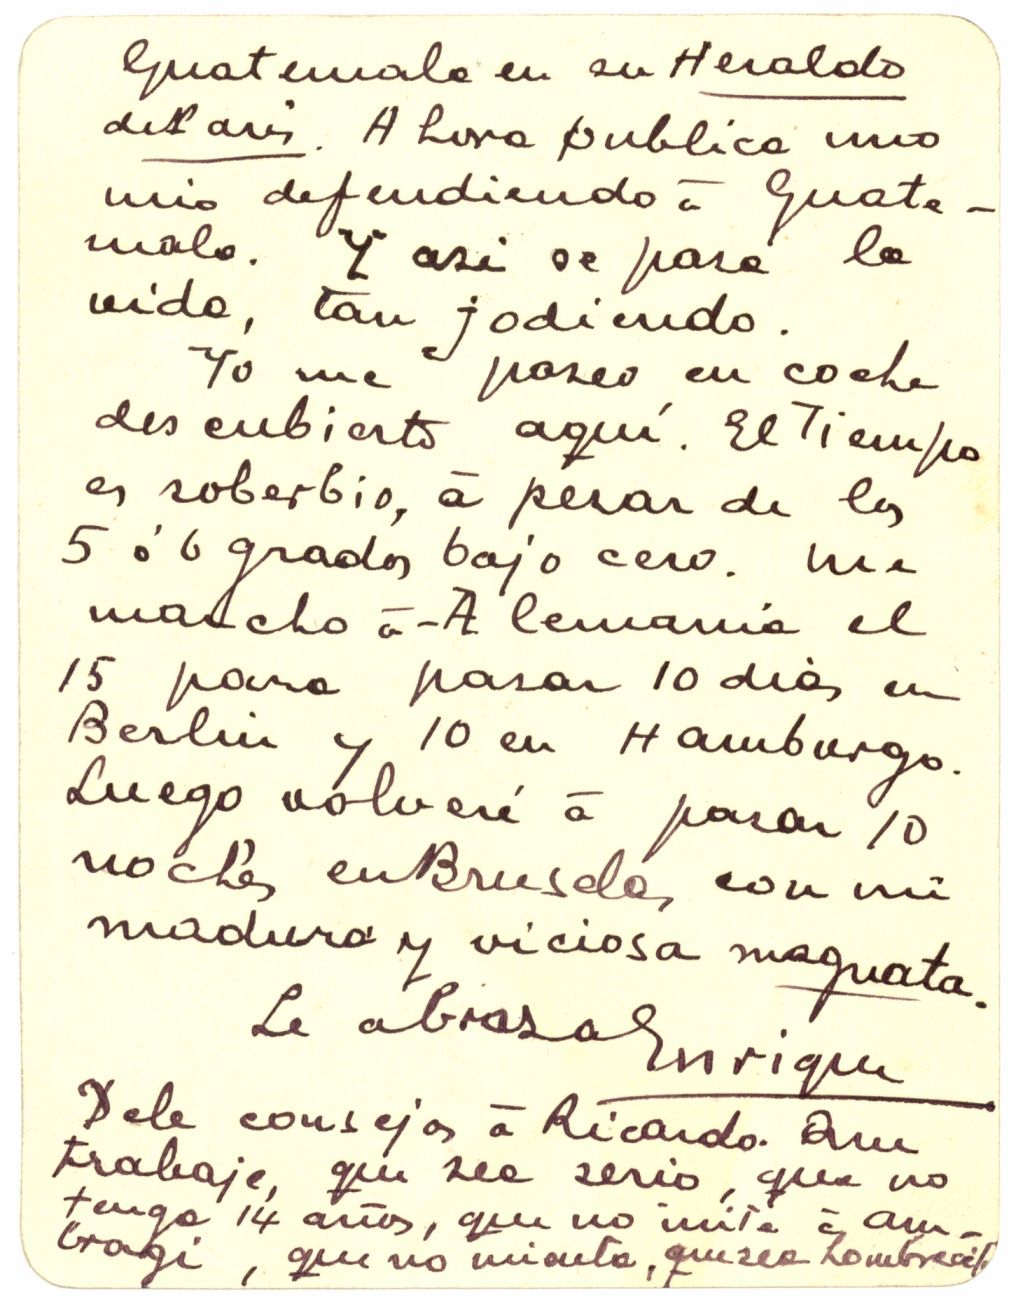 Guatemala en su Heraldo
de Paris. Ahora publica uno
mio defendiendo à Guate-
mala. Y asi se pasa la
vida, tan jodiendo.
Yo me paseo en coche
descubierto aquí. El Tiempo
es soberbio, à pesar de los
5 ó 6 grados bajo cero. Me
marcho à Alemania el
15 para pasar 10 dias en
Berlin y 10 en Hamburgo.
Luego volveré à pasar 10
noches en Bruselas con mi
madura y viciosa maguata.
Le abraza Enrique
Dele consejos à Ricardo. Que
trabaje, que sea serio, que no
tenga 14 años, que no imite à Am-
brogi, que no mienta, que sea hombre